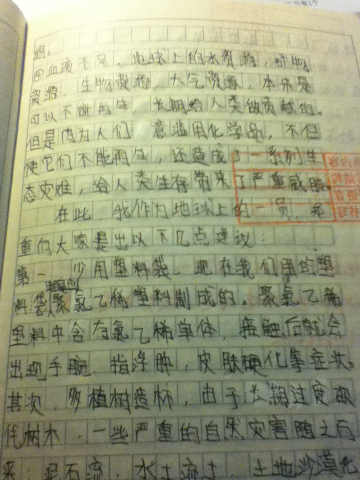 源。
回血液不足。地球上的水资源，矿物
资源，生物资源，大气资源，本来是
可以不断再生，长期给人类做贡献的。
但是因为人们意滥用化学品，不但
使它们不能再生，还造成了一系列生
态灾难，给人类生存带来了严重威胁。
在此，我作为地球上的一员，
重向大家提出以下几点建议：
第一，少用塑料袋。现在我们用的塑
料袋聚氯乙稀塑料制成的。聚氯乙稀
塑料中含有氯乙稀单体，接触后就会
出现手腕，指浮肿，皮肤硬化等症状。
其次，多植树造林，由于长期过度砍
伐树木，一些严重的自然灾害随之而
来，泥石流，水土流土，土地沙漠化